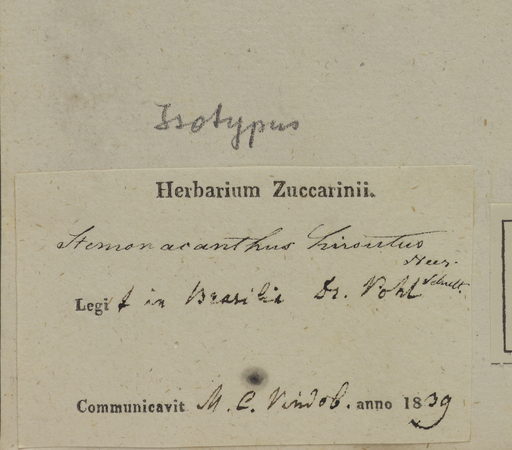 Isotypus
Herbarium Zuccarinii.
Stemonacanthus hirsutus
Nees.
Legit in Brasilia Dr. Pohl
Schult.
Communicavit M. C. Vindob. anno 1839